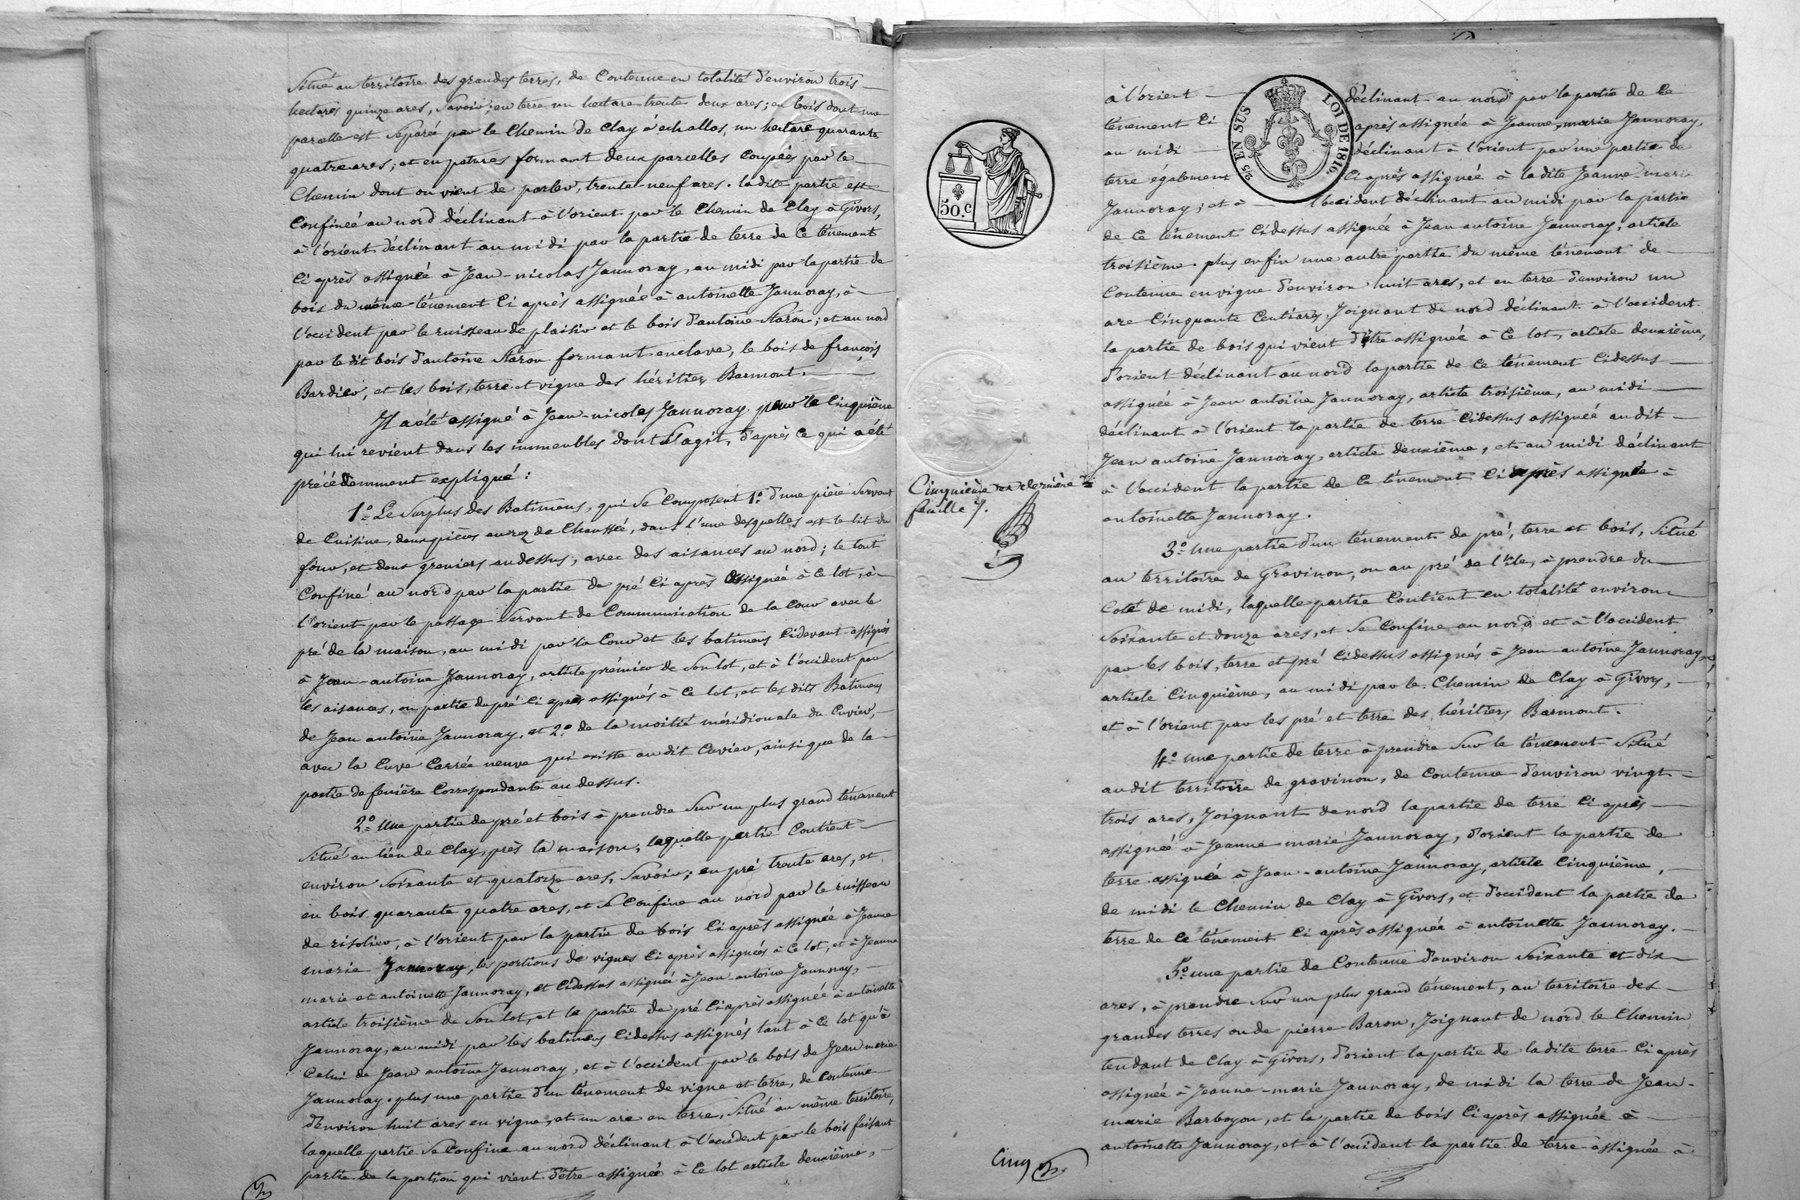 Situé au territoire des grandes terres, de Contenue en totalité d'environ trois
hectares quinze ares, Savoir; en terre un hectare trente deux ares; en bois dont une
parcelle est Séparée par le Chemin de Clay à échallas, un hectare quarante
quatre ares, et en patures formant deux parcelles Coupées par le
Chemin dont on vient de parler, trente neuf ares. ladite partie est
Confinée au nord déclinant à l'orient par le Chemin de Clay à Givors,
à l'orient déclinant au midi par la partie de terre de Ce ténement
Ci après assignée à Jean-nicolas Jannoray, au midi par la partie de
bois du même ténement Ci après assignée à antoinette Jannoray, à
l'occident par le ruisseau de plaisir et le bois d'antoine Naron; et au nord
par le dit bois d'antoine Naron formant enclave, le bois de françois
Bardieu, et les bois, terre et vigne des héritiers Barmont.
Il a été assigné à Jean-nicolas Jannoray pour le Cinquième
qui lui revient dans les immeubles dont S'agit, d'après Ce qui a été
précédemment expliqué:
1º Le Surplus des Batimens, qui Se Composent 1º d'une pièce Servant
de Cuisine, deux pièces au rez de Chaussée, dans l'une desquelles est le lit du
four, et deux greniers au dessus, avec des aisances au nord; le tout
Confiné au nord par la partie de pré Ci après assignée à Ce lot, à
l'orient par le passage Servant de Communication de la Cour avec le
pré de la maison, au midi par la Cour et les batimens Cidevant assignés
à Jean-antoine Jannoray, article prémier de Son lot, et à l'occident par
les aisances, ou partie du pré Ci après assignés à Ce lot, et les dits Batimens
de Jean antoine Jannoray, et 2º de la moitié méridionale du Cuvier,
avec la Cuve Carrée neuve qui existe audit Cuvier, ainsi que de la
partie de fenière Correspondante au dessus.
2º Une partie de pré et bois à prendre Sur un plus grand ténement
Situé au lieu de Clay, près la maison; laquelle partie Contient
environ Soixante et quatorze ares, Savoir; en pré trente ares, et
en bois quarante quatre ares, et Se Confine au nord par le ruisseau
de risolier, à l'orient par la partie de bois Ci après assignée à Jeanne
marie Jannoray, les portions de vignes Ci après assignées à Ce lot, et à Jeanne
marie et antoinette Jannoray, et Cidessus assignée à Jean-antoine Jannoray,
article troisième de Son lot, et la partie de pré Ci après assignée à antoinette
Jannoray, au midi par les batimens Cidessus assignés tant à Ce lot qu'à
Celui de Jean antoine Jannoray, et à l'occident par le bois de Jean marie
Jannoray. plus une partie d'un ténement de vigne et terre, de Contenue
d'environ huit ares en vigne, et un are en terre, Situé au même territoire,
laquelle partie Se Confine au nord déclinant à l'occident par le bois faisant
partie de la portion qui vient d'être assignée à Ce lot article deuxième,
50.C
Cinquième et dernière
feuille
Cinq
25 EN SUS
LOI DE 1816.
à l'orient déclinant au nord par la partie de Ce
ténement Ci après assignée à Jeanne marie Jannoray,
au midi déclinant à l'orient par une partie de
terre egalement Ci après assignée à la dite Jeanne marie
Jannoray; et à l'occident déclinant au midi par la partie
de Ce ténement Cidessus assignée à Jean antoine Jannoray, article
troisième. plus enfin une autre partie du même ténement de
Contenue en vigne d'environ huit ares, et en terre d'environ un
are Cinquante Centiares, Joignant de nord déclinant à l'occident
la partie de bois qui vient d'être assignée à Ce lot, article deuxième,
d'orient déclinant au nord la partie de Ce ténement Cidessus
assignée à Jean antoine Jannoray, article troisième, au midi
déclinant à l'orient la partie de terre Cidessus assignée audit
Jean antoine Jannoray, article deuxième, et au midi déclinant
à l'occident la partie de Ce ténement Ci après assignée à
antoinette Jannoray.
3º Une partie d'un ténement de pré, terre et bois, Situé
au territoire de Gravinon, ou au pré de l'île, à prendre du
Coté de midi, laquelle partie Contient en totalité environ
Soixante et douze ares, et Se Confine au nord et à l'occident
par les bois, terre et pré Cidessus assignés à Jean antoine Jannoray,
article Cinquième, au midi par le Chemin de Clay à Givors,
et à l'orient par les pré et terre des héritiers Barmont.
4º une partie de terre à prendre Sur le ténement Situé
audit territoire de gravinon, de Contenue d'environ vingt
trois ares, Joignant de nord la partie de terre Ci après
assignée à Jeanne-marie Jannoray, d'orient la partie de
terre assignée à Jean-antoine Jannoray, article Cinquième,
de midi le Chemin de Clay à Givors, et d'occident la partie de
terre de Ce ténement Ci après assignée à antoinette Jannoray.
5º une partie de Contenue d'environ Soixante et dix
ares, à prendre Sur un plus grand ténement, au territoire des
grandes terres ou de pierre Baron, Joignant de nord le Chemin
tendant de Clay à Givors, d'orient la partie de ladite terre Ci après
assignée à Jeanne-marie Jannoray, de midi la terre de Jean-
marie Barboyon, et la partie de bois Ci après assignée à
antoinette Jannoray, et à l'occident la partie de terre assignée à